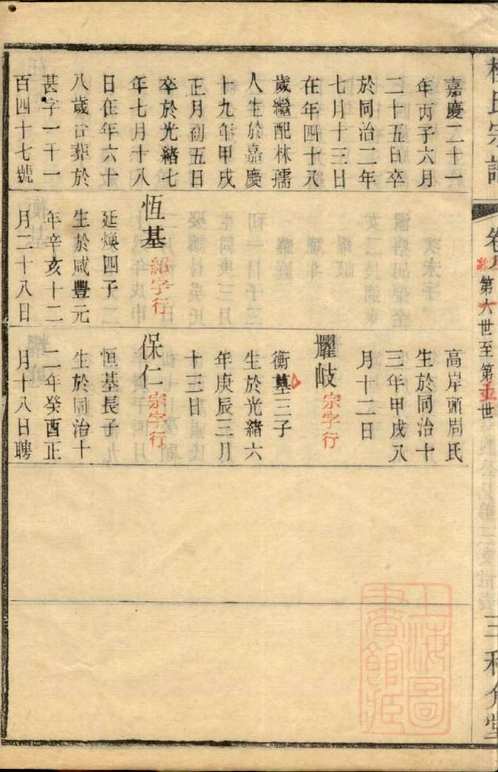 氏宗譜
第六世至第五世
嘉慶二十一
年丙子六月
二十五日卒
於同治二年
七月十三日
在年四十八
歲繼配林孺
人生於嘉慶
十九年甲戌
正月初五日
卒於光緒七
年七月十八
日在年六十
八歲合葬於
甚字一千一
百四十七號
恆基 紹字行
延煥四子
生於咸豐元
年辛亥十二
月二十八日
高岸頭周氏
生於同治十
三年甲戌八
月十二日
耀岐 宗字行
衡基三子
生於光緒六
年庚辰三月
十三日
保仁 宗字行
恒基長子
生於同治十
二年癸酉正
月十八日聘
上海圖
書館藏